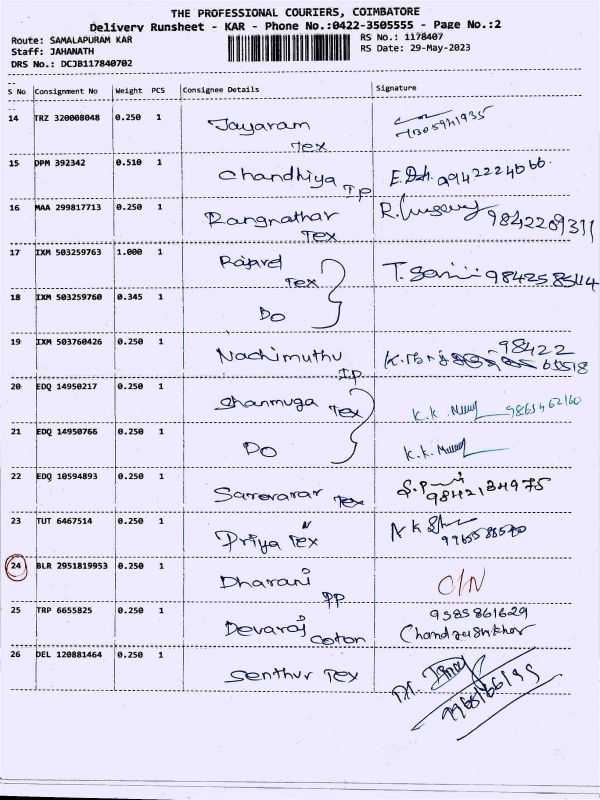 THE PROFESSIONAL COURIERS, COIMBATORE
Delivery Runsheet - KAR - Phone No.:0422-3505555 - Page No.:2
Route: SAMALAPURAM KAR RS No.: 1178407
Staff: JAHANATH RS Date: 29-May-2023
DRS No.: DCJB117840702
S No Consignment No Weight PCS Consignee Details Signature
14 TRZ 320008048 0.250 1 Jayaram Tex
15 DPM 392342 0.510 1 Chandhiya IP
16 MAA 299817713 0.250 1 Rangnathar Tex 9842209311
17 IXM 503259763 1.000 1 Rajavel Tex
18 IXM 503259760 0.345 1 Do
19 IXM 503760426 0.250 1 Nachimuthu IP 98422 65518
20 EDQ 14950217 0.250 1 Shanmuga Tex K.K. 9865462160
21 EDQ 14950766 0.250 1 Do K.K.
22 EDQ 10594893 0.250 1 Saravanar Tex 9842134975
23 TUT 6467514 0.250 1 Priya Tex
24 BLR 2951819953 0.250 1 Dharani PP O/N
25 TRP 6655825 0.250 1 Devaraj Coton 9585861629
26 DEL 120881464 0.250 1 Senthur Tex